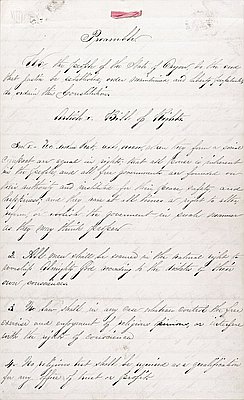 Preamble
We the people of the State of Oregon to the end
that justice be established, order maintained and liberty perpetuated
do ordain this Constitution.
Article 1. Bill of Rights
Sec 1. We declare that all men, when they form a social
compact are equal in rights, that all power is inherent
in the people, and all free governments are founded on
their authority and instituted for their peace, safety and
happiness, and they have at all times a right to alter
reform, or abolish the government in such manner
as they may think proper
2. All men shall be secured in the natural right to
worship Almighty God according to the dictates of their
own consciences
3. No law shall in any case whatever control the free
exercise and enjoyment of religious opinions, or interfere
with the rights of conscience
4. No religious test shall be required as a qualification
for any office of trust or profit